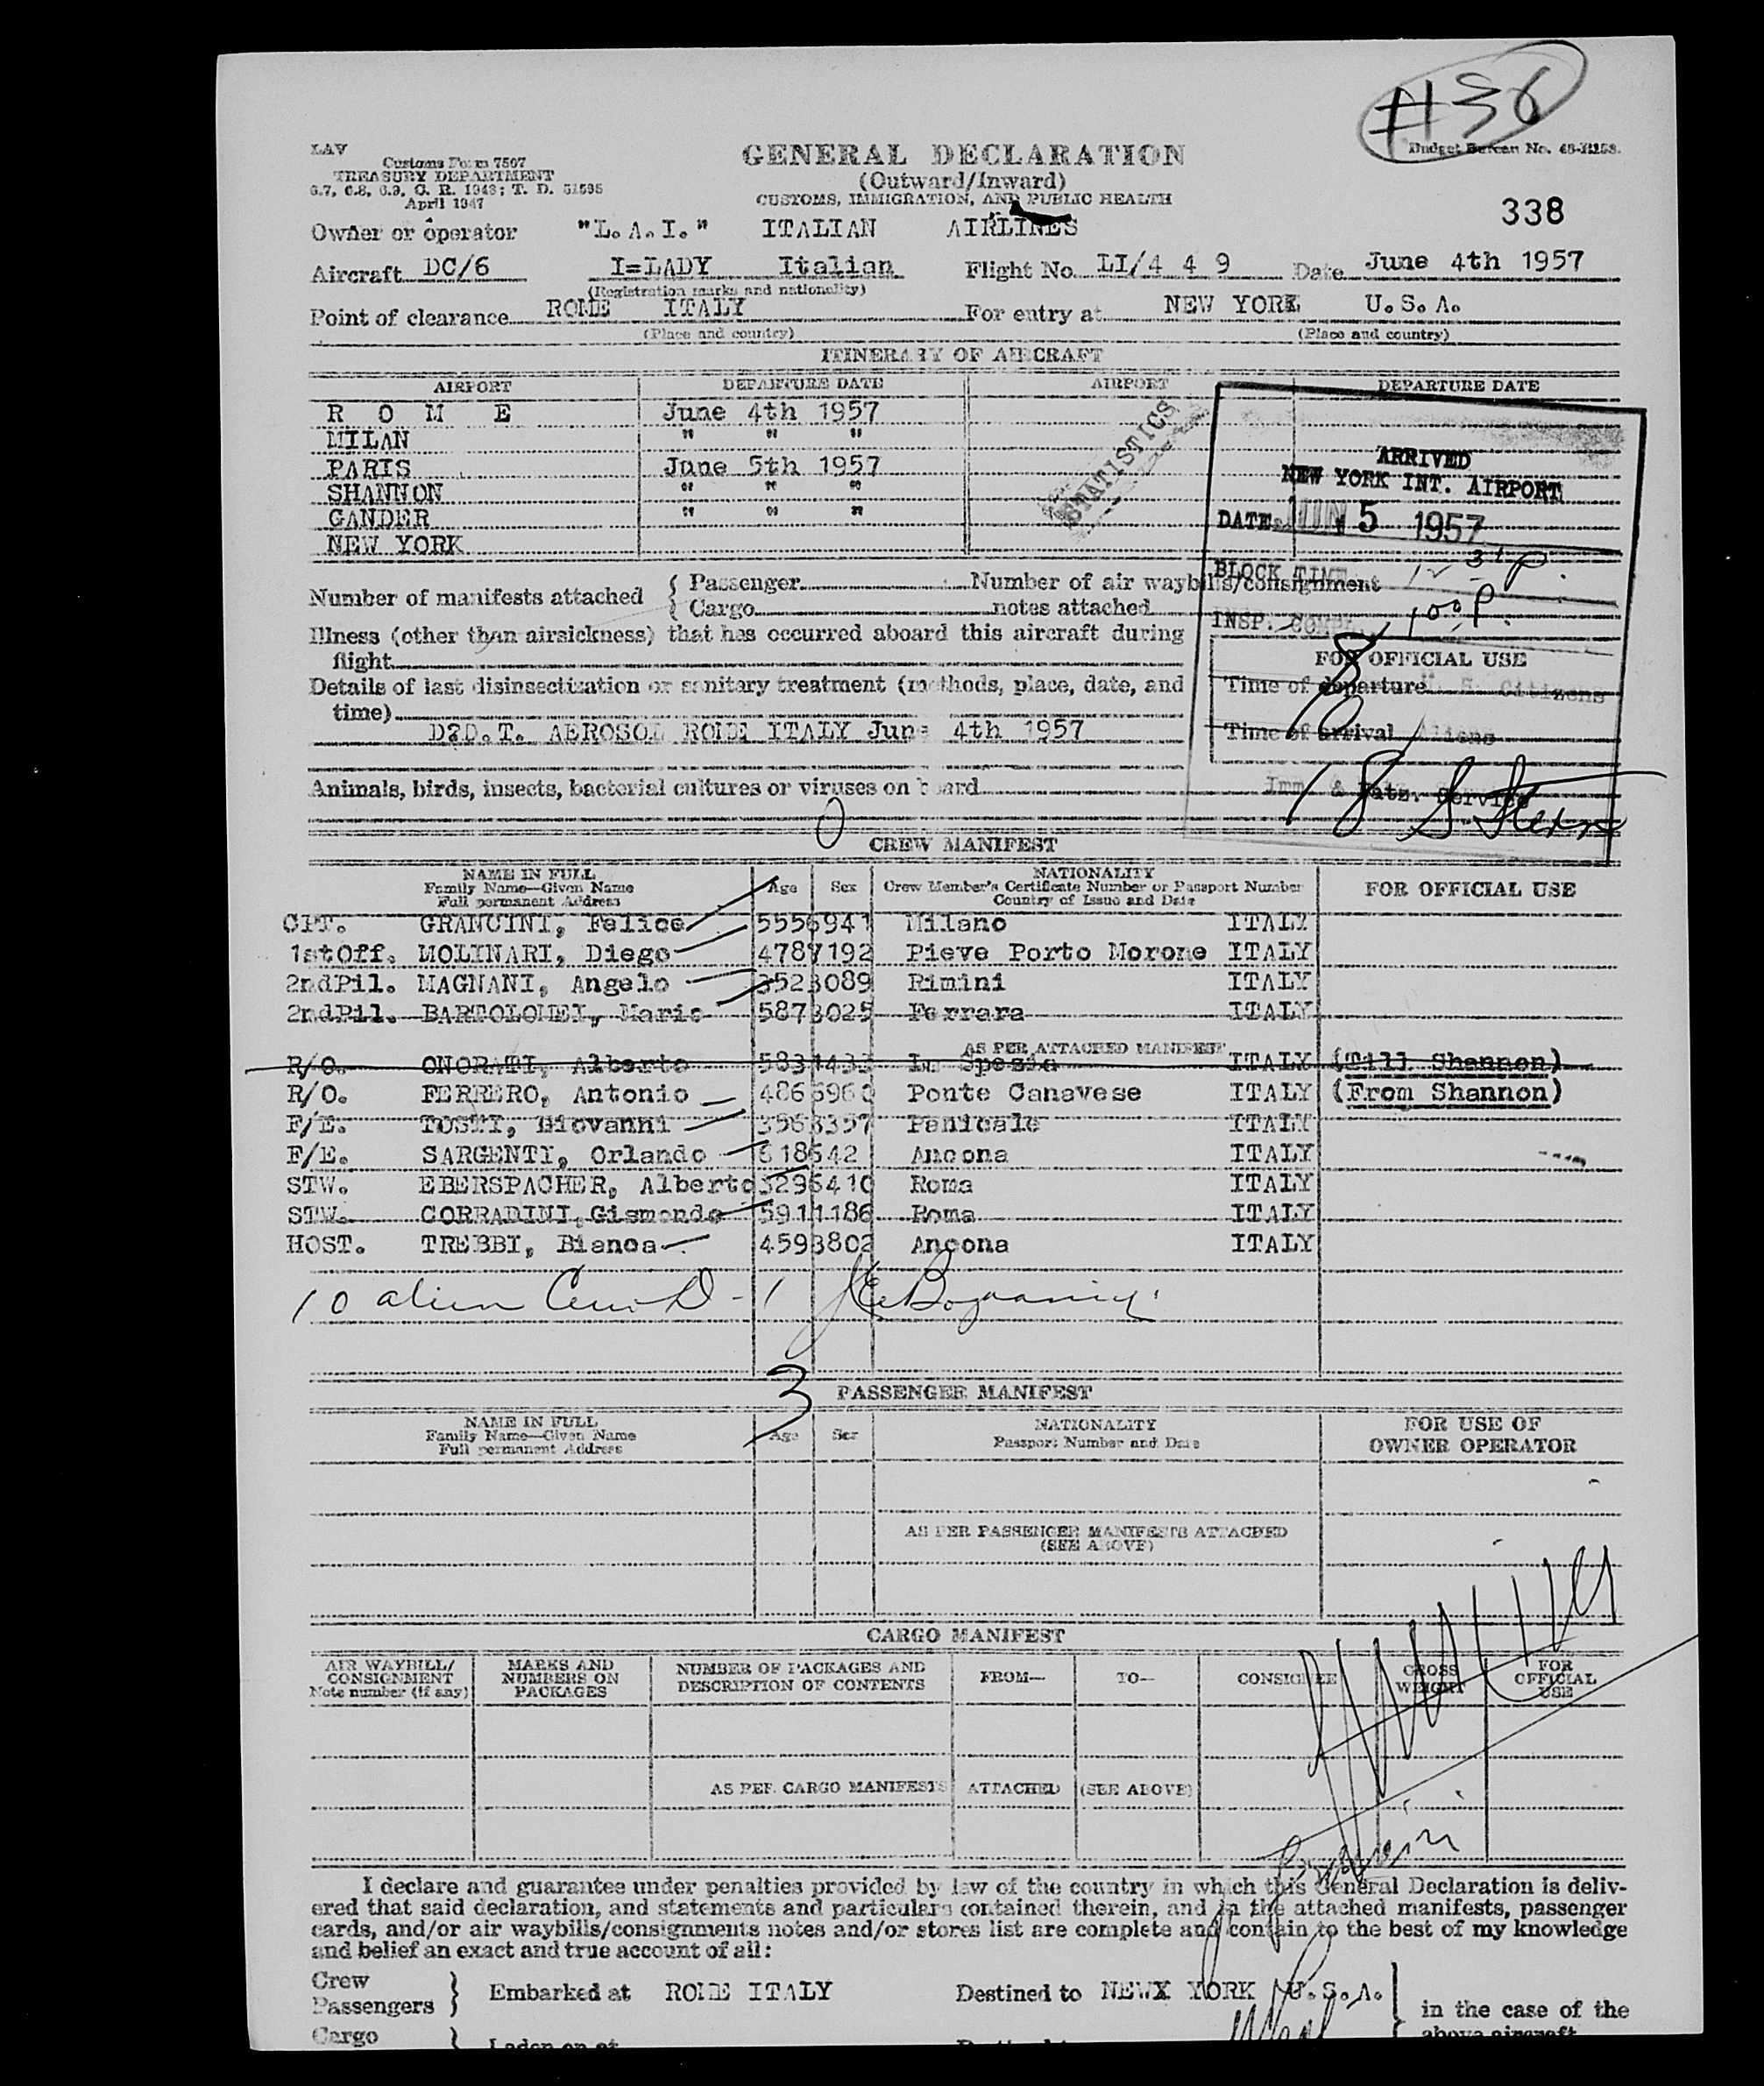 #36
LAV
Customs Form 7507
TREASURY DEPARTMENT
6.7, 6.8, 6.9, C. R. 1943; T. D. 51595
April 1947
GENERAL DECLARATION
(Outward/Inward)
CUSTOMS, IMMIGRATION, AND PUBLIC HEALTH
Budget Bureau No.
338
Owner or operator "L.A.I." ITALIAN AIRLINES
Aircraft DC/6 I=LADY Italian Flight No. LI/4 4 9 Date June 4th 1957
(Registration marks and nationality)
Point of clearance ROME ITALY For entry at NEW YORK U.S.A.
(Place and country) (Place and country)
ITINERARY OF AIRCRAFT
AIRPORT DEPARTURE DATE AIRPORT DEPARTURE DATE
R O M E June 4th 1957
MILAN " " "
PARIS June 5th 1957
SHANNON " " "
GANDER " " "
NEW YORK
STATISTICS
ARRIVED
NEW YORK INT. AIRPORT
DATE JUN 5 1957
BLOCK TIME 12 31 P.
INSP. COMPL. 1 00 P.
Number of manifests attached { Passenger Number of air waybills/consignment
{ Cargo notes attached
Illness (other than airsickness) that has occurred aboard this aircraft during
flight
Details of last disinsectization or sanitary treatment (methods, place, date, and
time)
D?D.T. AEROSOL ROME ITALY June 4th 1957
Animals, birds, insects, bacterial cultures or viruses on board
0
FOR OFFICIAL USE
8
Time of departure U. S. Citizens
10
Time of arrival Aliens
Imm. & Natz. Service
18 S. Stern
CREW MANIFEST
NAME IN FULL
Family Name—Given Name
Full permanent Address
Age Sex
NATIONALITY
Crew Member's Certificate Number or Passport Number
Country of Issue and Date
FOR OFFICIAL USE
CPT. GRANCINI, Felice 5556941 Milano ITALY
1stOff. MOLINARI, Diego 4787192 Pieve Porto Morone ITALY
2ndPil. MAGNANI, Angelo 3523089 Rimini ITALY
2ndPil. BARTOLOMEI, Mario 5873025 Ferrara ITALY
AS PER ATTACHED MANIFEST
R/O. ONORATI, Alberto 5834433 La Spezia ITALY (Till Shannon)
R/O. FERRERO, Antonio Ponte Canavese ITALY (From Shannon)
F/E. TOSTI, Giovanni 3568357 Panicale ITALY
F/E. SARGENTI, Orlando 618642 Ancona ITALY
STW. EBERSPACHER, Alberto 3296410 Roma ITALY
STW. CORRADINI, Gismondo 5911186 Roma ITALY
HOST. TREBBI, Bianca 4593802 Ancona ITALY
10 alien Crew D-1
3
PASSENGER MANIFEST
NAME IN FULL
Family Name—Given Name
Full permanent Address
Age Sex
NATIONALITY
Passport Number and Date
FOR USE OF
OWNER OPERATOR
AS PER PASSENGER MANIFESTS ATTACHED
(SEE ABOVE)
CARGO MANIFEST
AIR WAYBILL/
CONSIGNMENT
Note number (if any)
MARKS AND
NUMBERS ON
PACKAGES
NUMBER OF PACKAGES AND
DESCRIPTION OF CONTENTS
FROM—
TO—
CONSIGNEE
GROSS
WEIGHT
FOR
OFFICIAL
USE
AS PER CARGO MANIFESTS ATTACHED (SEE ABOVE)
I declare and guarantee under penalties provided by law of the country in which this General Declaration is deliv-
ered that said declaration, and statements and particulars contained therein, and in the attached manifests, passenger
cards, and/or air waybills/consignments notes and/or stores list are complete and contain to the best of my knowledge
and belief an exact and true account of all:
Crew
Passengers } Embarked at ROME ITALY Destined to NEWX YORK U.S.A. } in the case of the
Cargo } Laden on at Destined to above aircraft